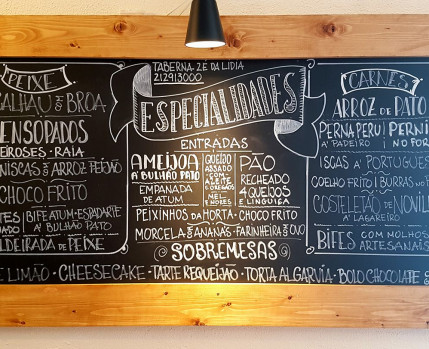 PEIXE
CALHAU COM BROA
ENSOPADOS
EIROSES · RAIA
NISCAS ARROZ FEIJÃO
CHOCO FRITO
BIFE ATUM · ESPADARTE
À BULHÃO PATO
ALDEIRADA DE PEIXE
TABERNA · ZÉ DA LIDIA
212913000
ESPECIALIDADES
ENTRADAS
AMEIJOA
À BULHÃO PATO
EMPANADA
DE ATUM
QUEIJO
ASSADO
COM
AZEITE
E OREGÃOS
MEL
E NOZES
PÃO
RECHEADO
4 QUEIJOS
E LINGUIÇA
PEIXINHOS DA HORTA · CHOCO FRITO
MORCELA ANANÁS · FARINHEIRA OVO
SOBREMESAS
CARNES
ARROZ DE PATO
PERNA PERU
À PADEIRO
PERNI
NO FOR
ISCAS À PORTUGUES
COELHO FRITO BURRAS NO F
COSTELETÃO DE NOVIL
À LAGAREIRO
BIFES COM MOLHOS
ARTESANAIS
E LIMÃO · CHEESECAKE · TARTE REQUEIJÃO · TORTA ALGARVIA · BOLO CHOCOLATE